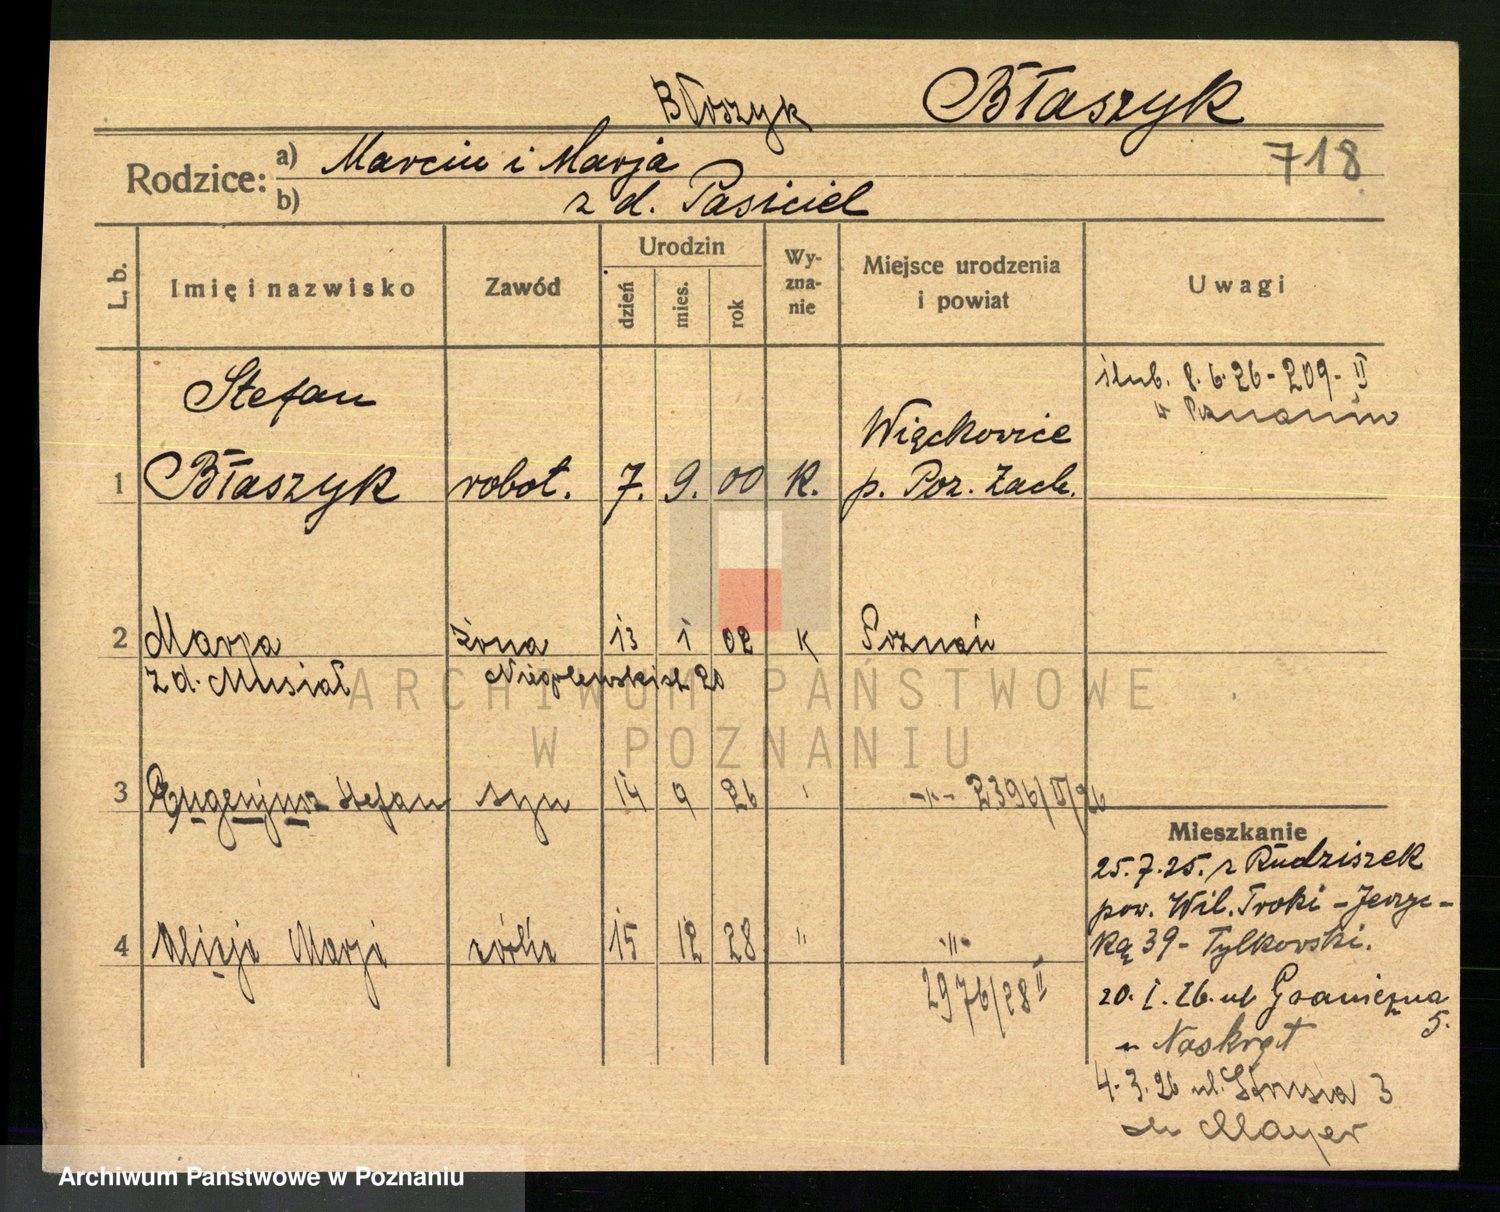 Błoszyk Błaszyk
Rodzice: a) Marcin i Marja 718
b) z d. Pasiciel
L. b. Imię i nazwisko Zawód Urodzin dzień mies. rok Wy-zna-nie Miejsce urodzenia i powiat Uwagi
ślub. 8.6.26-209-II
w Poznaniu
Stefan
Więckowice
1 Błaszyk robot. 7. 9. 00 K. p. Poz. Zach.
2 Marja żona 13 1 02 K Poznań
z d. Musiał Niegolewskich 20
3 Eugenjusz Stefan syn 14 9 26 -"- 2396/II/26
Mieszkanie
25.7.25. z Rudziszek
pow. Wil. Troki - Jerzyc-
ką 39 - Tylkowski.
4 Alicja Marja córka 15 12 28 " -"-
2976/28 II
20. I. 26. ul Graniczna
5.
u Naskręt
4.3.26 ul. Strusia 3
Mayer
ARCHIWUM PAŃSTWOWE
W POZNANIU
Archiwum Państwowe w Poznaniu